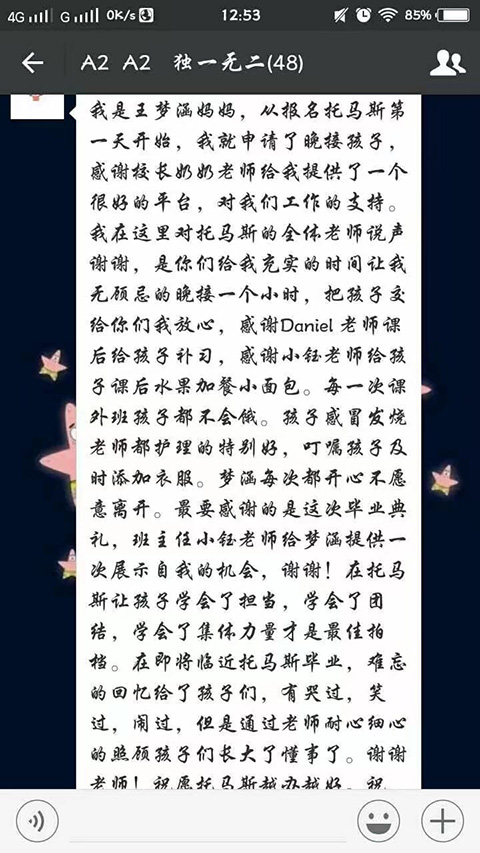 4G G 0K/s 12:53 85%
A2 A2 独一无二(48)
我是王梦涵妈妈，从报名托马斯第
一天开始，我就申请了晚接孩子，
感谢校长奶奶老师给我提供了一个
很好的平台，对我们工作的支持。
我在这里对托马斯的全体老师说声
谢谢，是你们给我充实的时间让我
无顾忌的晚接一个小时，把孩子交
给你们我放心，感谢Daniel 老师课
后给孩子补习，感谢小钰老师给孩
子课后水果加餐小面包。每一次课
外班孩子都不会饿。孩子感冒发烧
老师都护理的特别好，叮嘱孩子及
时添加衣服。梦涵每次都开心不愿
意离开。最要感谢的是这次毕业典
礼，班主任小钰老师给梦涵提供一
次展示自我的机会，谢谢！在托马
斯让孩子学会了担当，学会了团
结，学会了集体力量才是最佳拍
档。在即将临近托马斯毕业，难忘
的回忆给了孩子们，有哭过，笑
过，闹过，但是通过老师耐心细心
的照顾孩子们长大了懂事了。谢谢
老师！祝愿托马斯越办越好。祝